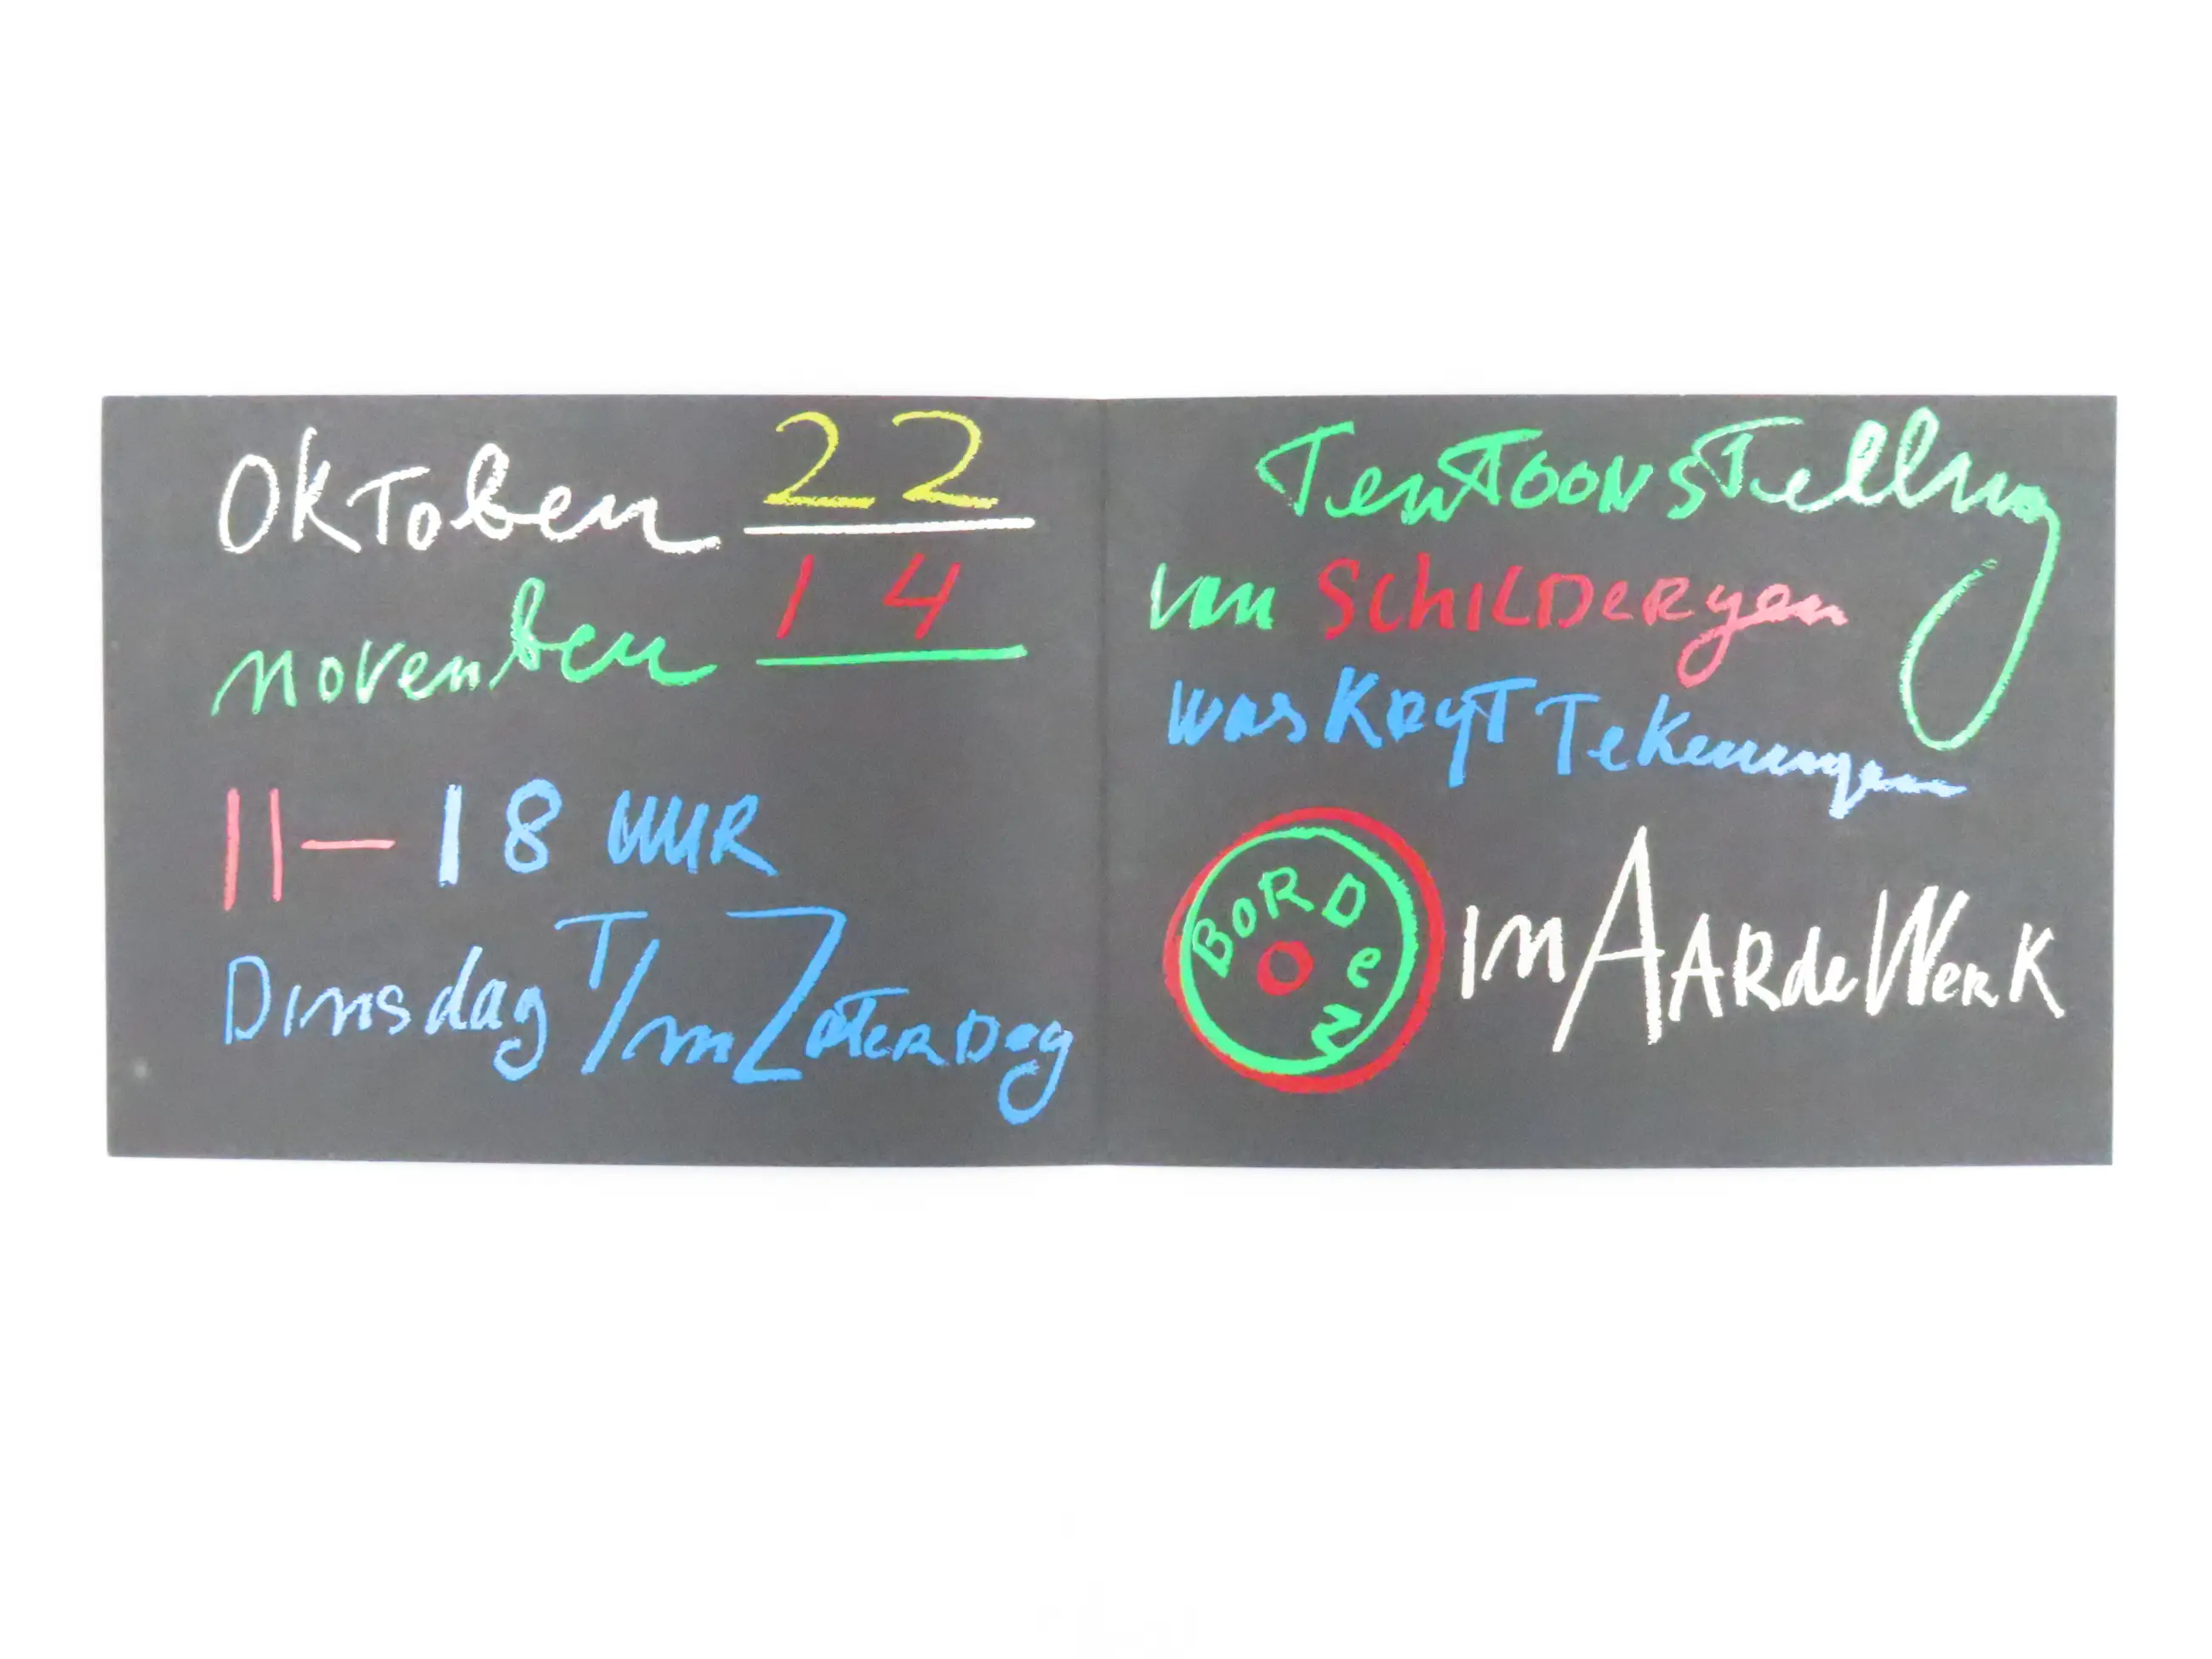 Oktober 22
november 14
11 — 18 uur
Dinsdag T/m Zaterdag
Tentoonstelling
van SchilDeRyen
was KRyT Tekeningen
BORDeN in AARdeWerk